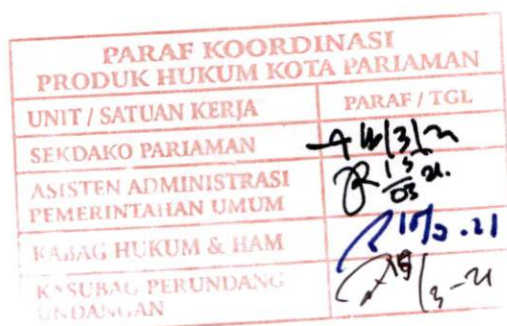 PARAF KOORDINASI
PRODUK HUKUM KOTA PARIAMAN
UNIT / SATUAN KERJA PARAF / TGL
SEKDAKO PARIAMAN
ASISTEN ADMINISTRASI 15
PEMERINTAHAN UMUM 03 21.
KABAG HUKUM & HAM
KASUBAG PERUNDANG
UNDANGAN